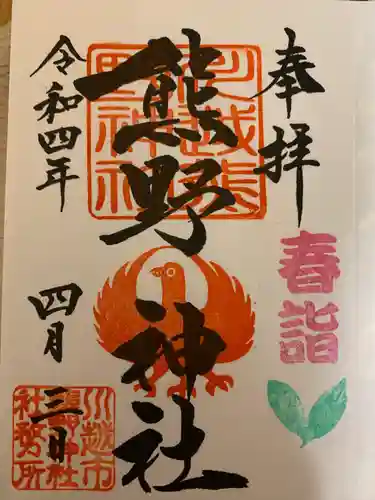 奉拝
春詣
熊野神社
川越熊
野神社
令和四年
四月三日
川越市
熊野神社
社務所